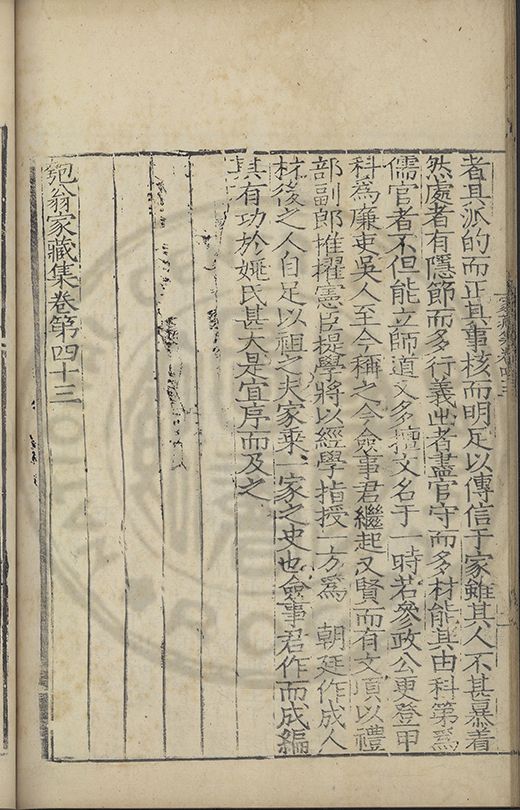 者其派的而正其事核而明足以傳信于家雖其人不甚暴着
然處者有隱節而多行義出者盡官守而多材能其由科第為
儒官者不但能立師道又多擅文名于一時若參政公更登甲
科為廉吏吳人至今稱之今僉事君繼起又賢而有文頃以禮
部副郎推擢憲臣提學將以經學指授一方為 朝廷作成人
材後之人自足以祖之夫家乗一家之史也僉事君作而成編
其有功於姚氏甚大是宜序而及之
匏翁家藏集卷第四十三